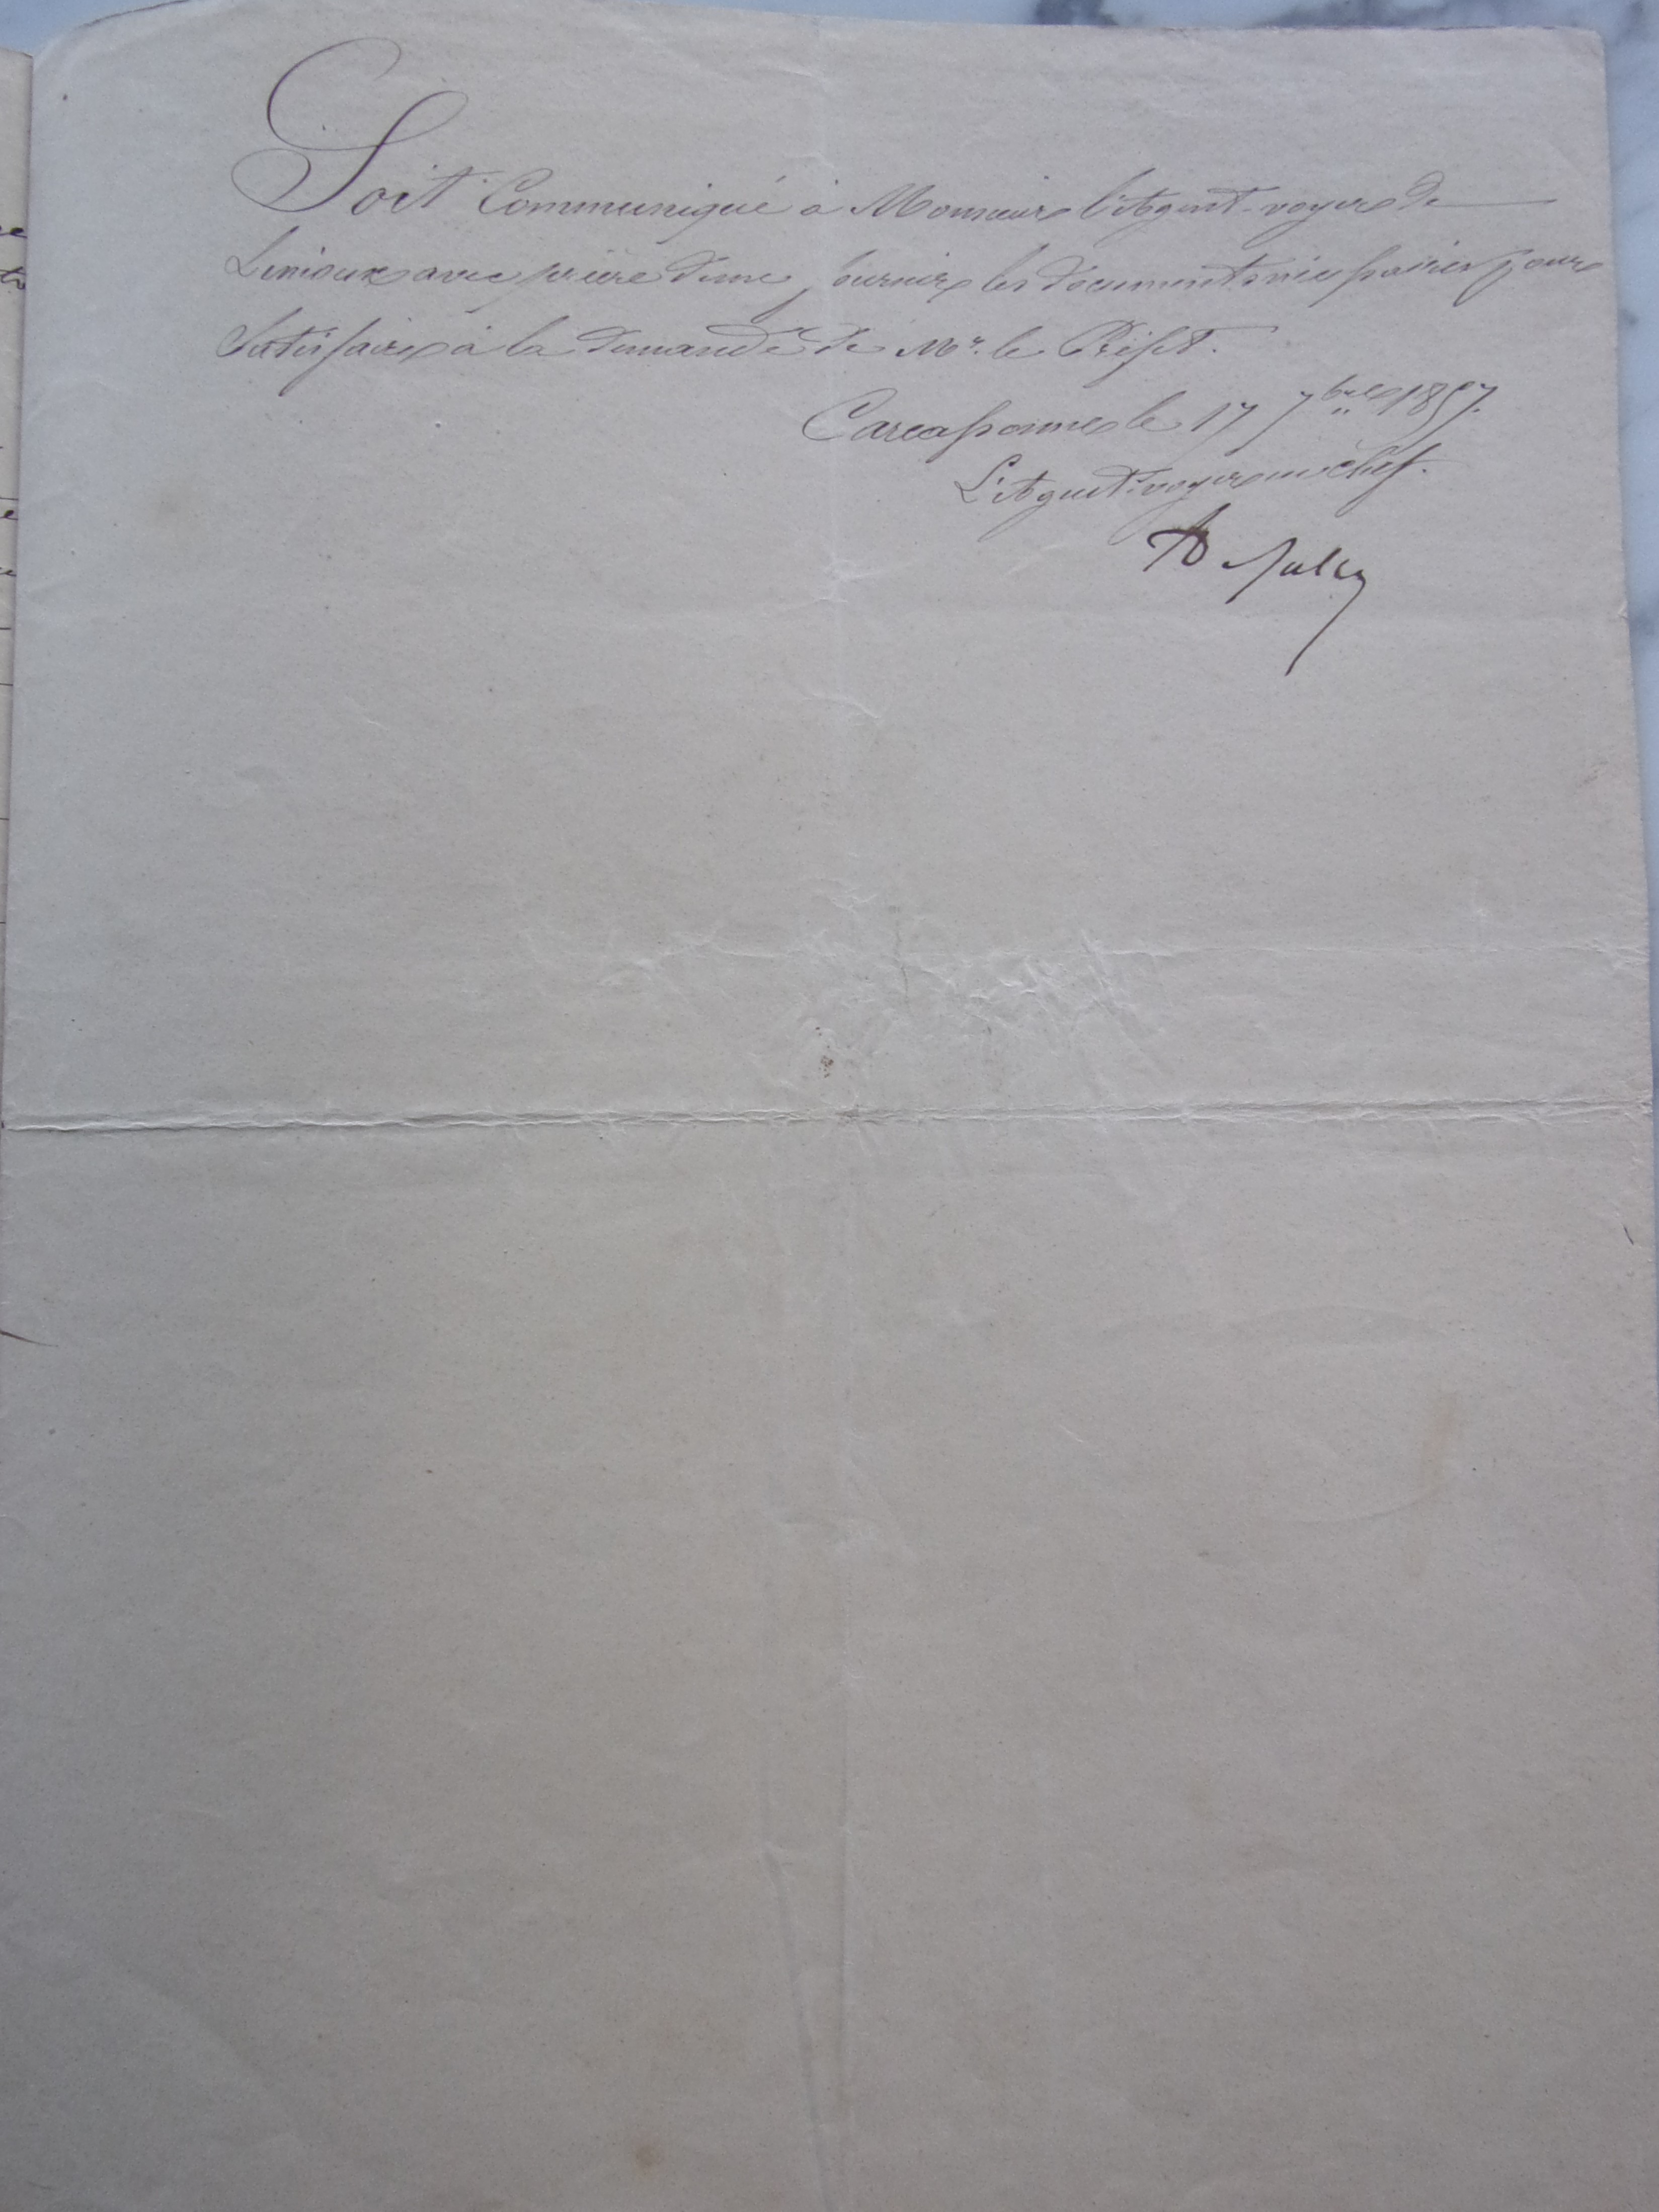 Soit Communiqué à Monsieur l'Agent-voyer de
Limoux avec prière de me fournir les documents nécessaires pour
Satisfaire à la demande de Mr. le Préfet.
Carcassonne le 17 7bre 1857.
L'Agent-voyer en chef.